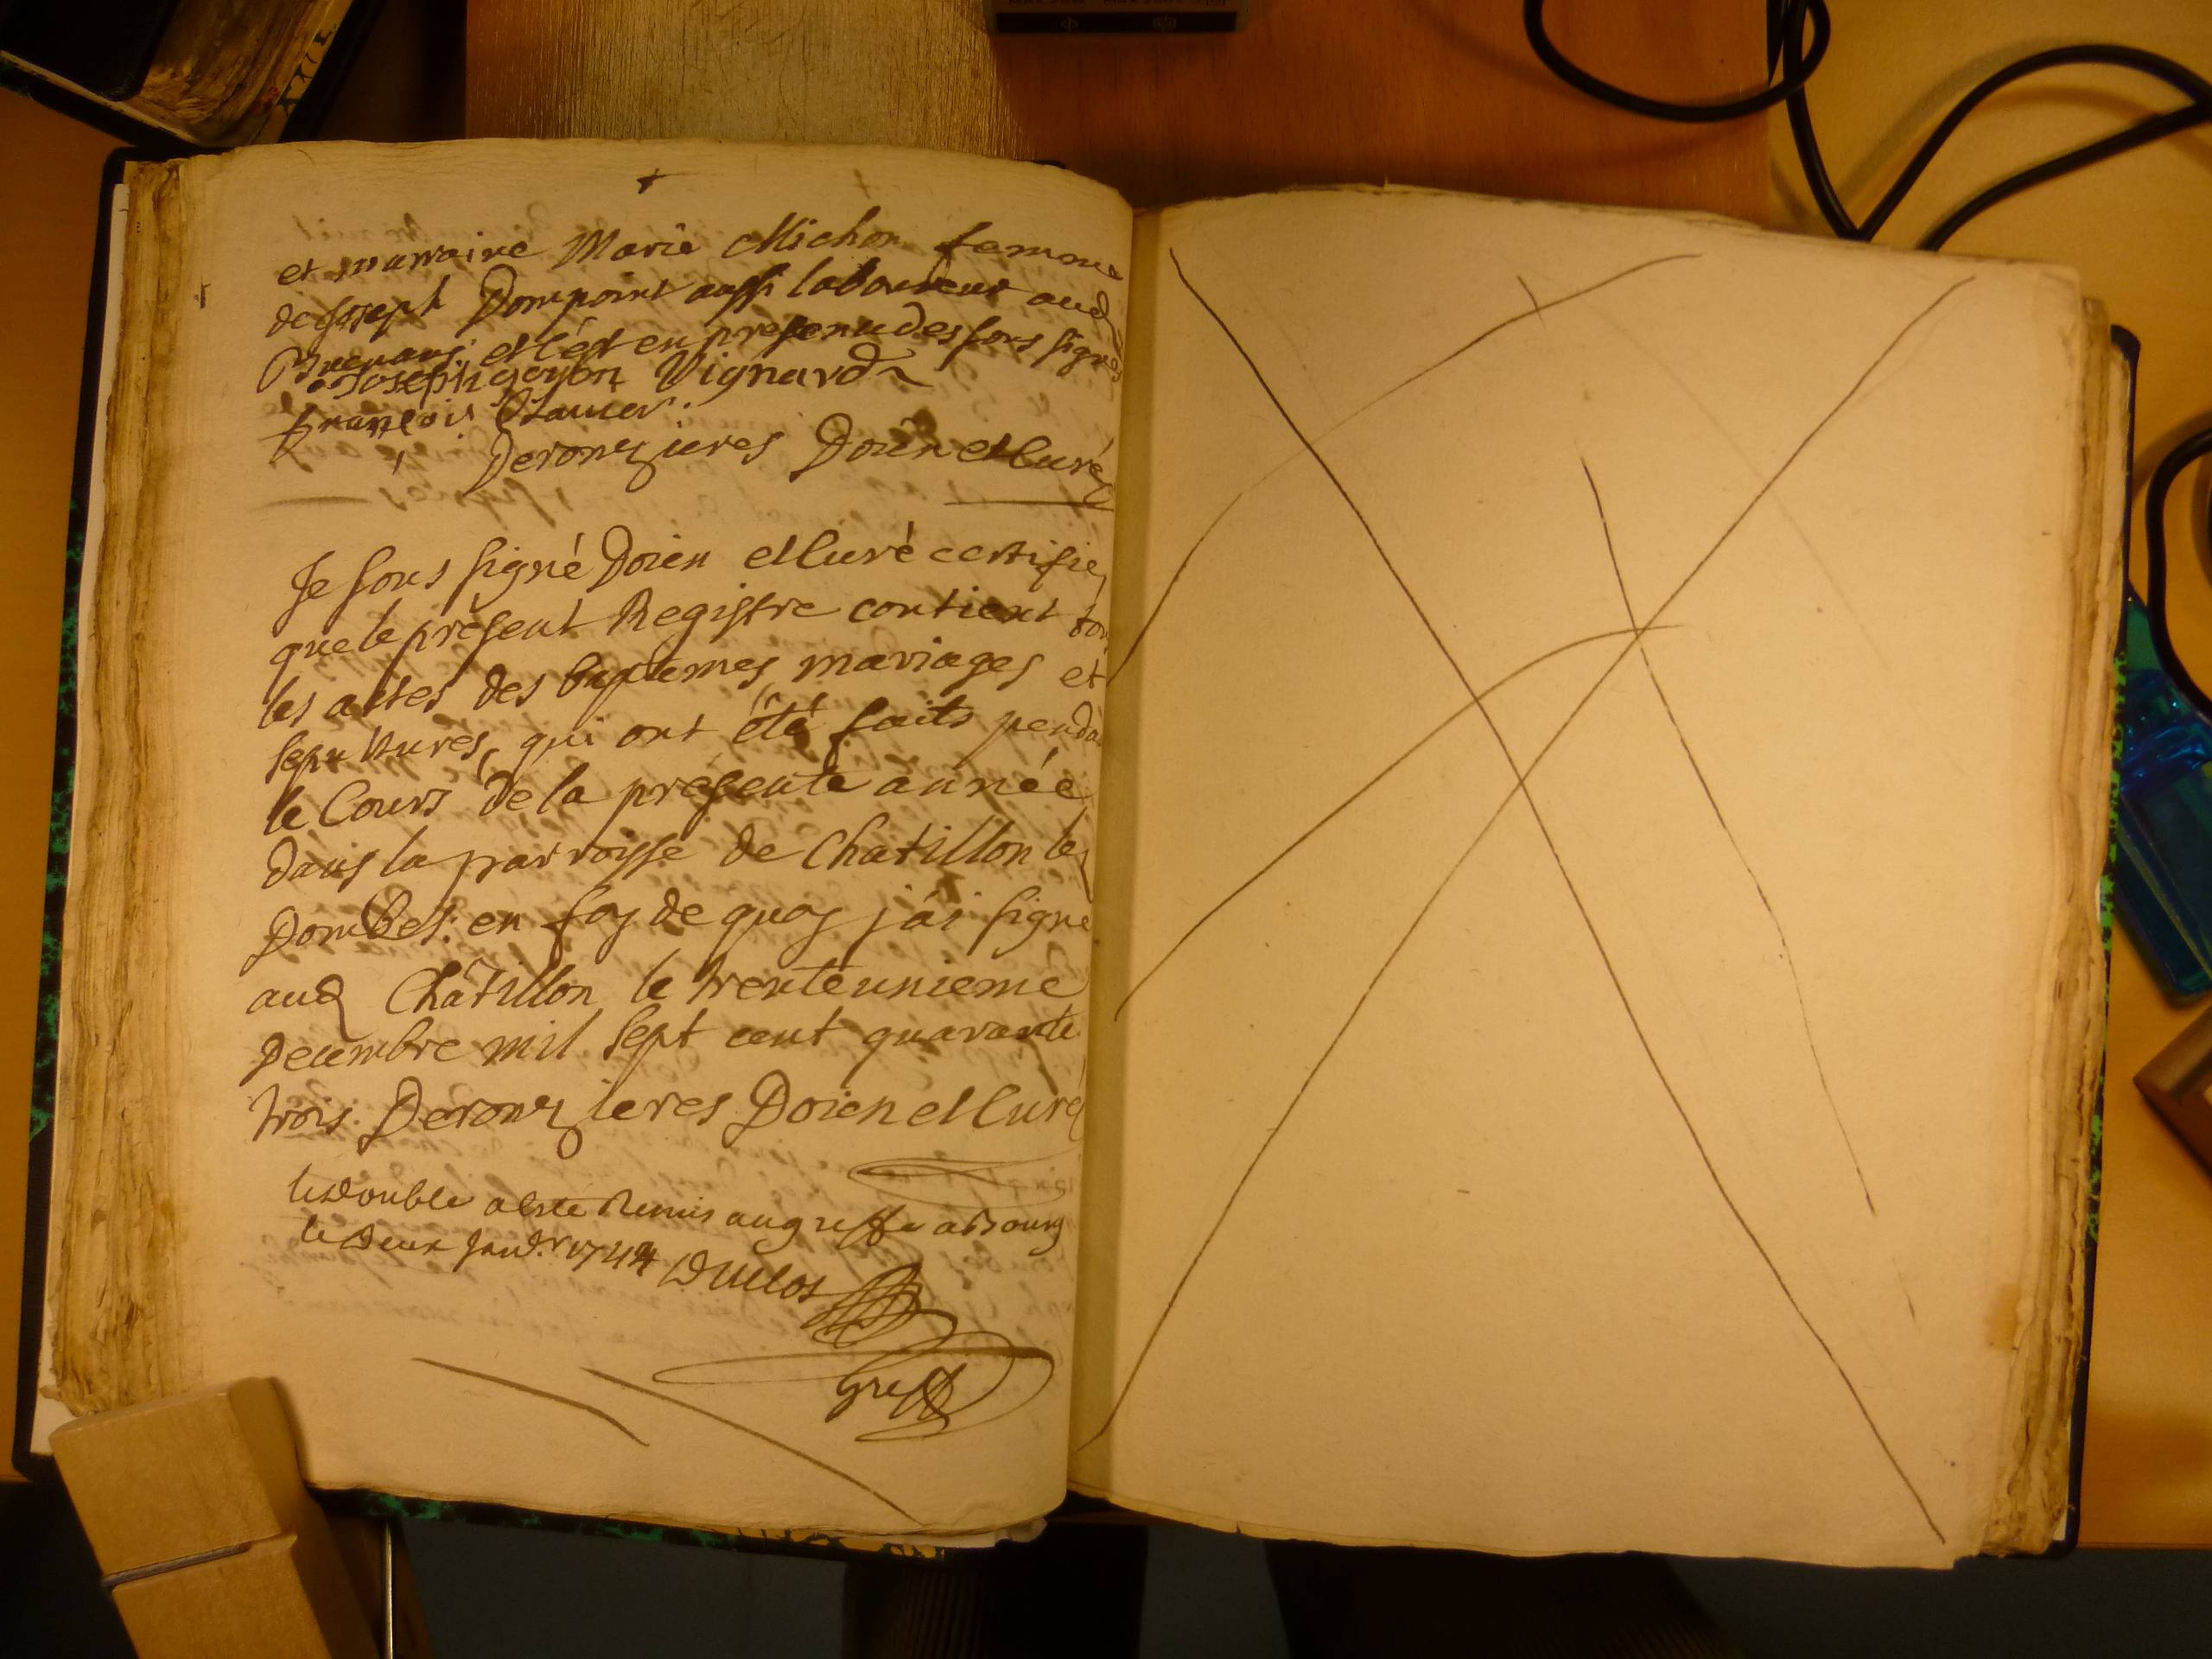 et marraine Marie Michon femme
de Joseph Dompoint aussi laboureur aud
et ce en presence des sous signes
Joseph goyon Vignard
françois
Deronzieres Doien et Curé
Je sous signé Doien et Curé certifie
que le présent Registre contient tou
les actes des baptemes, mariages et
sepultures, qui ont été faits penda
le Cours de la presente année
dans la parroisse de Chatillon les
Dombes. en foy de quoy j'ai signe
aud Châtillon le trente unieme
Decembre mil sept cent quarante
trois. Deronzieres Doien et Curé
le double a esté Remis au greffe a Bourg
le deux Janv.r 1744 Duclos
Greff